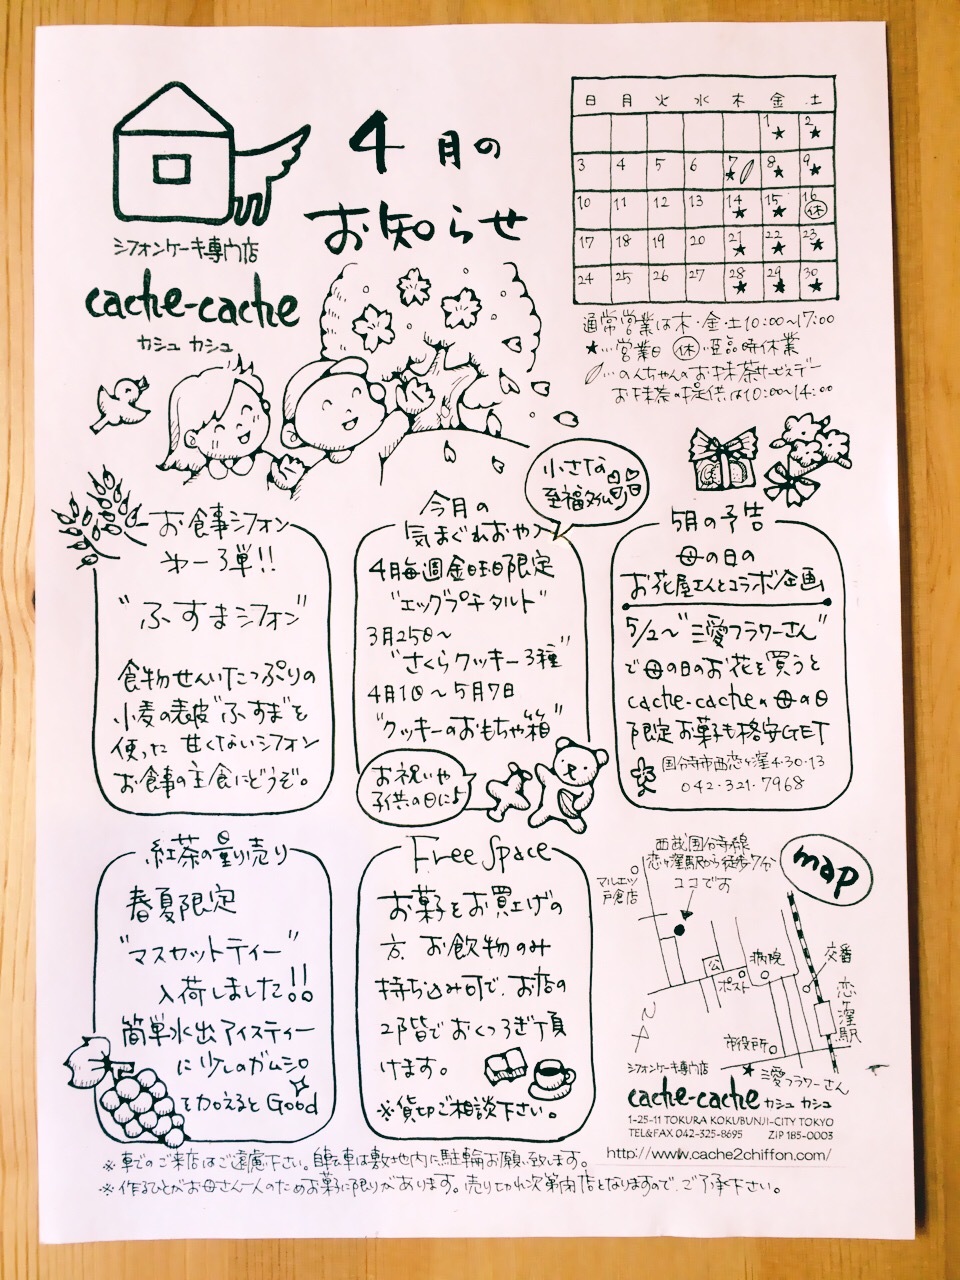 4月の
お知らせ
シフォンケーキ専門店
cache-cache
カシュ カシュ
日 月 火 水 木 金 土
1★ 2★
3 4 5 6 7★ 8★ 9★
10 11 12 13 14★ 15★ 16休
17 18 19 20 21★ 22★ 23★
24 25 26 27 28★ 29★ 30★
通常営業は木・金・土10:00〜17:00
★…営業日 休…臨時休業
…のんちゃんのお抹茶サービスデー
お抹茶の提供は10:00〜14:00
お食事シフォン
第3弾!!
"ふすまシフォン"
食物せんいたっぷりの
小麦の表皮"ふすま"を
使った 甘くないシフォン
お食事の主食にどうぞ。
小さな
至福タイム
今月の
気まぐれおやつ
4月毎週金曜日限定
"エッグプチタルト"
3月25日〜
"さくらクッキー3種"
4月1日〜5月7日
"クッキーのおもちゃ箱"
お祝いや
子供の日にも
5月の予告
母の日の
お花屋さんとコラボ企画
5/2〜"三愛フラワーさん"
で母の日のお花を買うと
cache-cacheの母の日
限定お菓子も格安GET
国分寺市西恋ヶ窪4-30-13
042-321-7968
紅茶の量り売り
春夏限定
"マスカットティー"
入荷しました!!
簡単水出アイスティー
に少しのガムシロ
を加えるとGood
Free Space
お菓子をお買上げの
方、お飲物のみ
持ち込み可で、お店の
2階でおくつろぎ頂
けます。
※貸切ご相談下さい。
map
西武国分寺線
恋ヶ窪駅から徒歩7分
ココです
マルエツ
戸倉店
公
ポスト
病院
交番
恋ヶ窪駅
市役所
★三愛フラワーさん
シフォンケーキ専門店
cache-cache カシュ カシュ
1-25-11 TOKURA KOKUBUNJI-CITY TOKYO
TEL&FAX 042-325-8695 ZIP 185-0003
http://www.cache2chiffon.com/
※車でのご来店はご遠慮下さい。自転車は敷地内に駐輪お願い致します。
※作るひとがお母さん一人のためお菓子に限りがあります。売り切れ次第閉店となりますので、ご了承下さい。